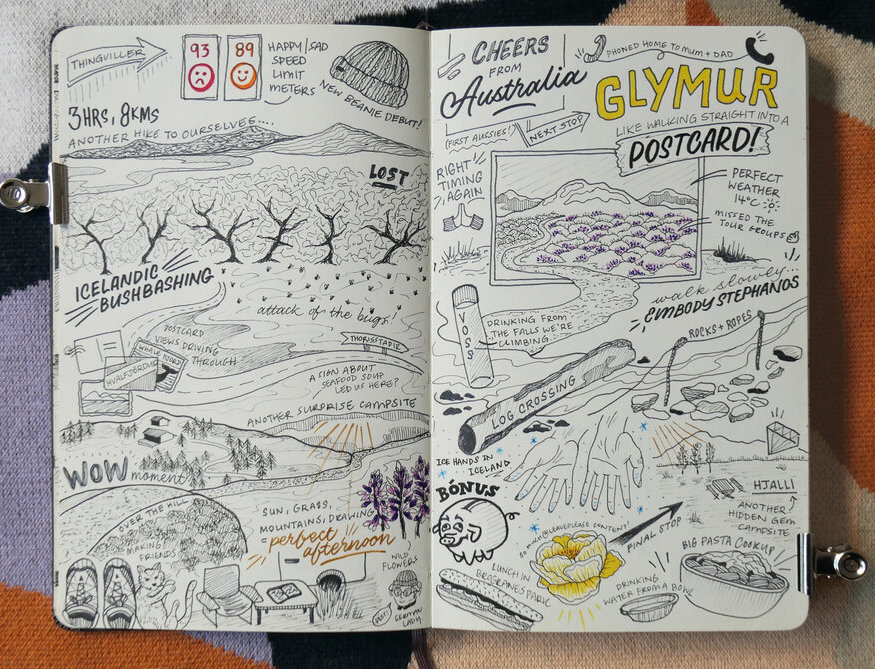 THINGVILLER
93
89
HAPPY/SAD
SPEED
LIMIT
METERS
NEW BEANIE DEBUT!
3HRS, 8KMS
ANOTHER HIKE TO OURSELVES....
LOST
ICELANDIC
BUSHBASHING
attack of the bugs!
POSTCARD
VIEWS DRIVING
THROUGH
WHALE FJORD
HVALFJÖRÐUR
THORISSTADIR
A SIGN ABOUT
SEAFOOD SOUP
LED US HERE?
ANOTHER SURPRISE CAMPSITE
WOW moment
OVER THE HILL
MAKING
FRIENDS
SUN, GRASS,
MOUNTAINS, DRAWING
= perfect
afternoon
WILD
FLOWERS
GERMAN
LADY
CHEERS
FROM
Australia
(FIRST AUSSIES!)
NEXT STOP
PHONED HOME TO MUM + DAD
GLYMUR
LIKE WALKING STRAIGHT INTO A
POSTCARD!
RIGHT
TIMING
AGAIN
PERFECT
WEATHER
14°C
MISSED THE
TOUR GROUPS
walk slowly...
EMBODY STEPHANOS
MOSS
DRINKING FROM
THE FALLS WE'RE
CLIMBING
ROCKS + ROPES
LOG CROSSING
ICE HANDS IN
ICELAND
BÓNUS
HJALLI
ANOTHER
HIDDEN GEM
CAMPSITE
FINAL STOP
BIG PASTA COOKUP
LUNCH IN
BORGARNES PARK
DRINKING
WATER FROM A BOWL